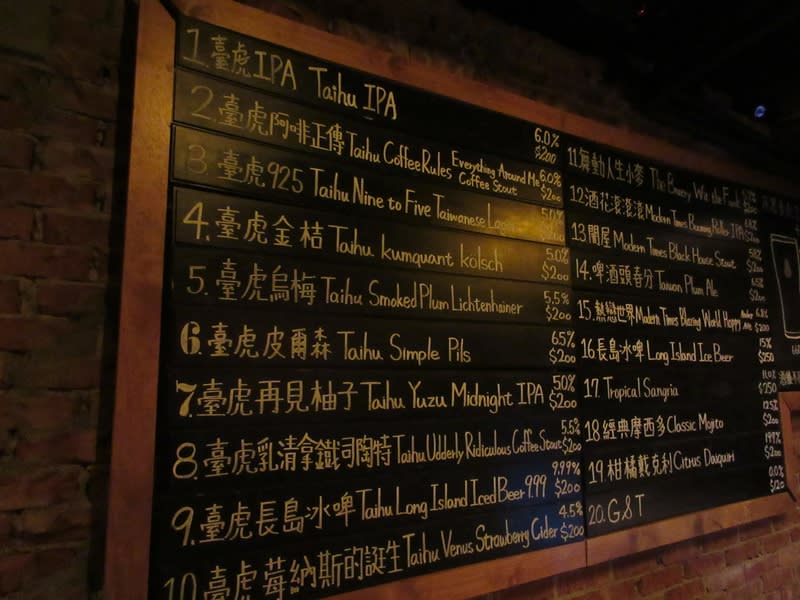 1.臺虎IPA Taihu IPA 6.0% $200
2.臺虎咖啡正傳 Taihu CoffeeRules Everything Around Me Coffee Stout 6.0% $200
3.臺虎925 Taihu Nine to Five Taiwanese Lager 5.0%
4.臺虎金桔 Taihu kumquant kölsch 5.0% $200
5.臺虎烏梅 Taihu Smoked Plum Lichtenhainer 5.5% $200
6.臺虎皮爾森 Taihu Simple Pils 6.5% $200
7.臺虎再見柚子 Taihu Yuzu Midnight IPA 5.0% $200
8.臺虎乳清拿鐵司陶特 Taihu Udderly Ridiculous Coffee Stout 5.5% $200
9.臺虎長島冰啤 Taihu Long Island Iced Beer 9.99 9.99% $200
10.臺虎莓納斯的誕生 Taihu Venus Strawberry Cider 4.5% $200
11.舞動人生小麥 The Bruery Wit the Funk
12.酒花滾滾滾 Modern Times Booming Roller IPA $200
13.闇屋 Modern Times Black House Stout 5.8% $200
14.啤酒頭春分 Taiwan Plum Ale $200
15.熱戀世界 Modern Times Blazing World Hoppy Amber Ale 6.8% $200
16.長島冰啤 Long Island Ice Beer 15% $250
17. Tropical Sangria 11.0% $250
18.經典摩西多 Classic Mojito 12.5% $200
19.柑橘戴克利 Citrus Daiquiri 19.9% $200
20.G&T 0.0% $120